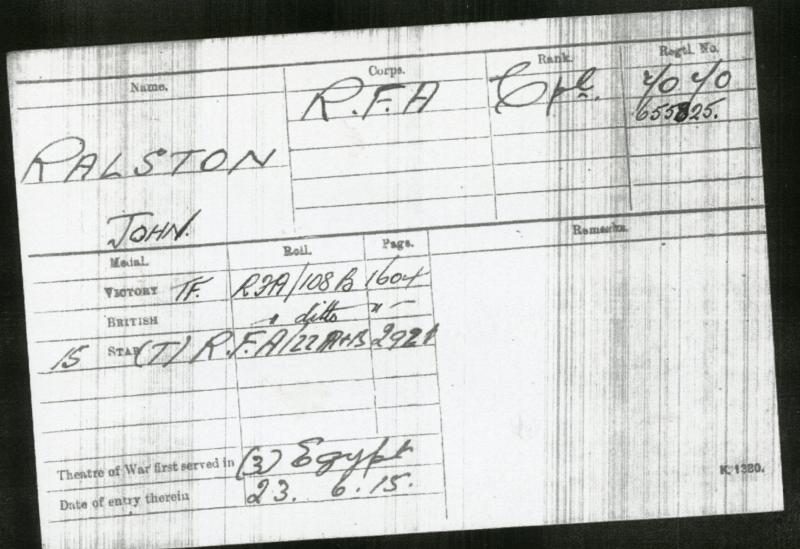 Name. Corps. Rank. Regtl. No.
R.F.A Cpl. 4040
RALSTON 655825.
JOHN.
Medal. Roll. Page. Remarks.
VICTORY TF. RFA/108 B 1604
BRITISH " ditto " —
15 STAR (T) R.F.A/22 A+B 2921
Theatre of War first served in (3) Egypt
Date of entry therein 23. 6. 15.
K. 1380.